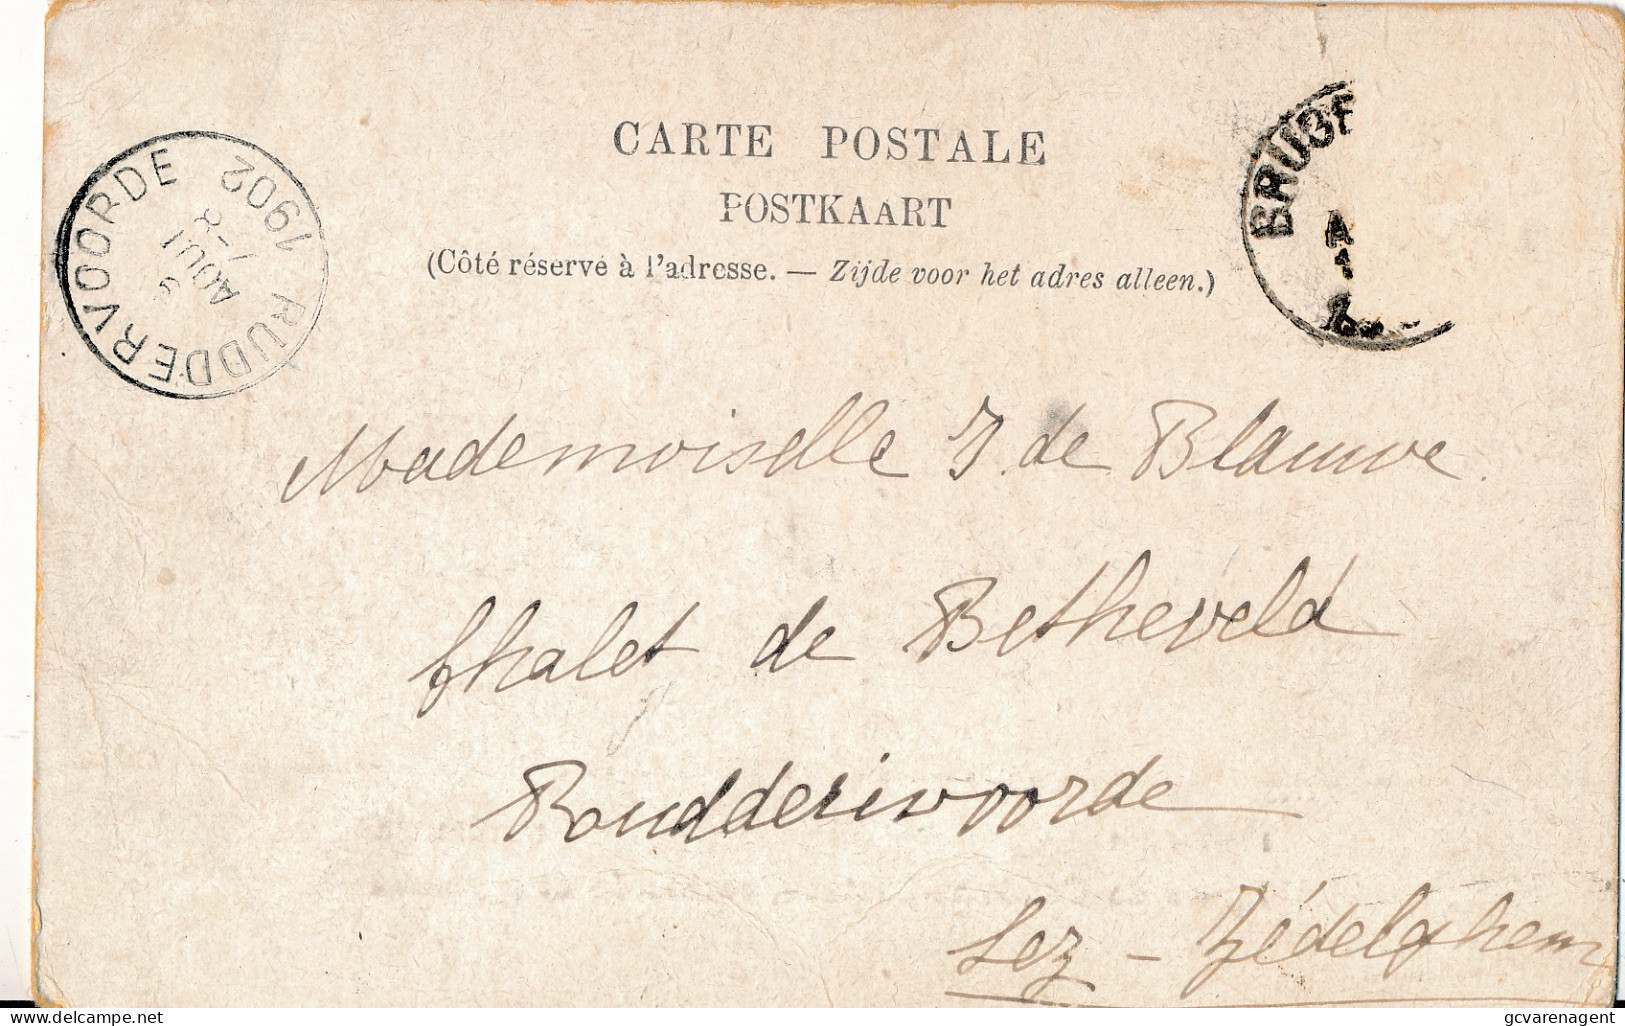 CARTE POSTALE
POSTKAART
(Côté réservé à l'adresse. — Zijde voor het adres alleen.)
RUDDERVOORDE 1902
AOUT
BRUGE
Mademoiselle J. de Blauwe.
Chalet de Betheveld
Roudderivoorde
Lez - Zédelghem
delcampe.net
gcvarenagent